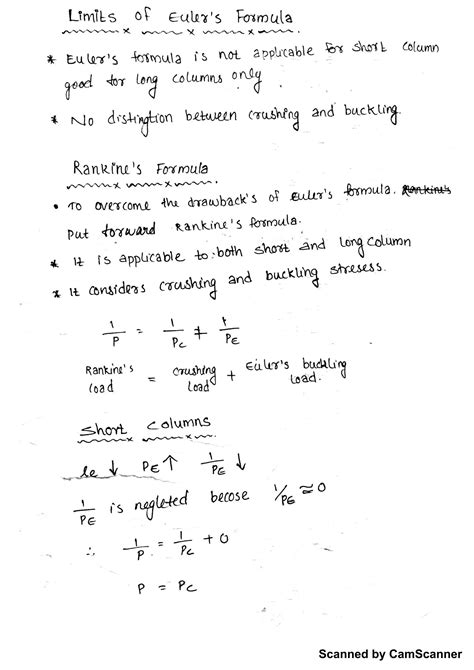 Limits of Euler's Formula
* Euler's formula is not applicable for short column
good for long columns only
* No distingtion between crushing and buckling.
Rankine's Formula
• To overcome the drawback's of Euler's formula. Rankine's
Put forward Rankine's formula.
* It is applicable to both short and long column
* It considers crushing and buckling stresess.
1/P = 1/Pc + 1/PE
Rankine's load = crushing load + Euler's buckling load.
Short columns
le ↓ PE ↑ 1/PE ↓
1/PE is negleted becose 1/PE ≈ 0
∴ 1/P = 1/Pc + 0
P = Pc
Scanned by CamScanner